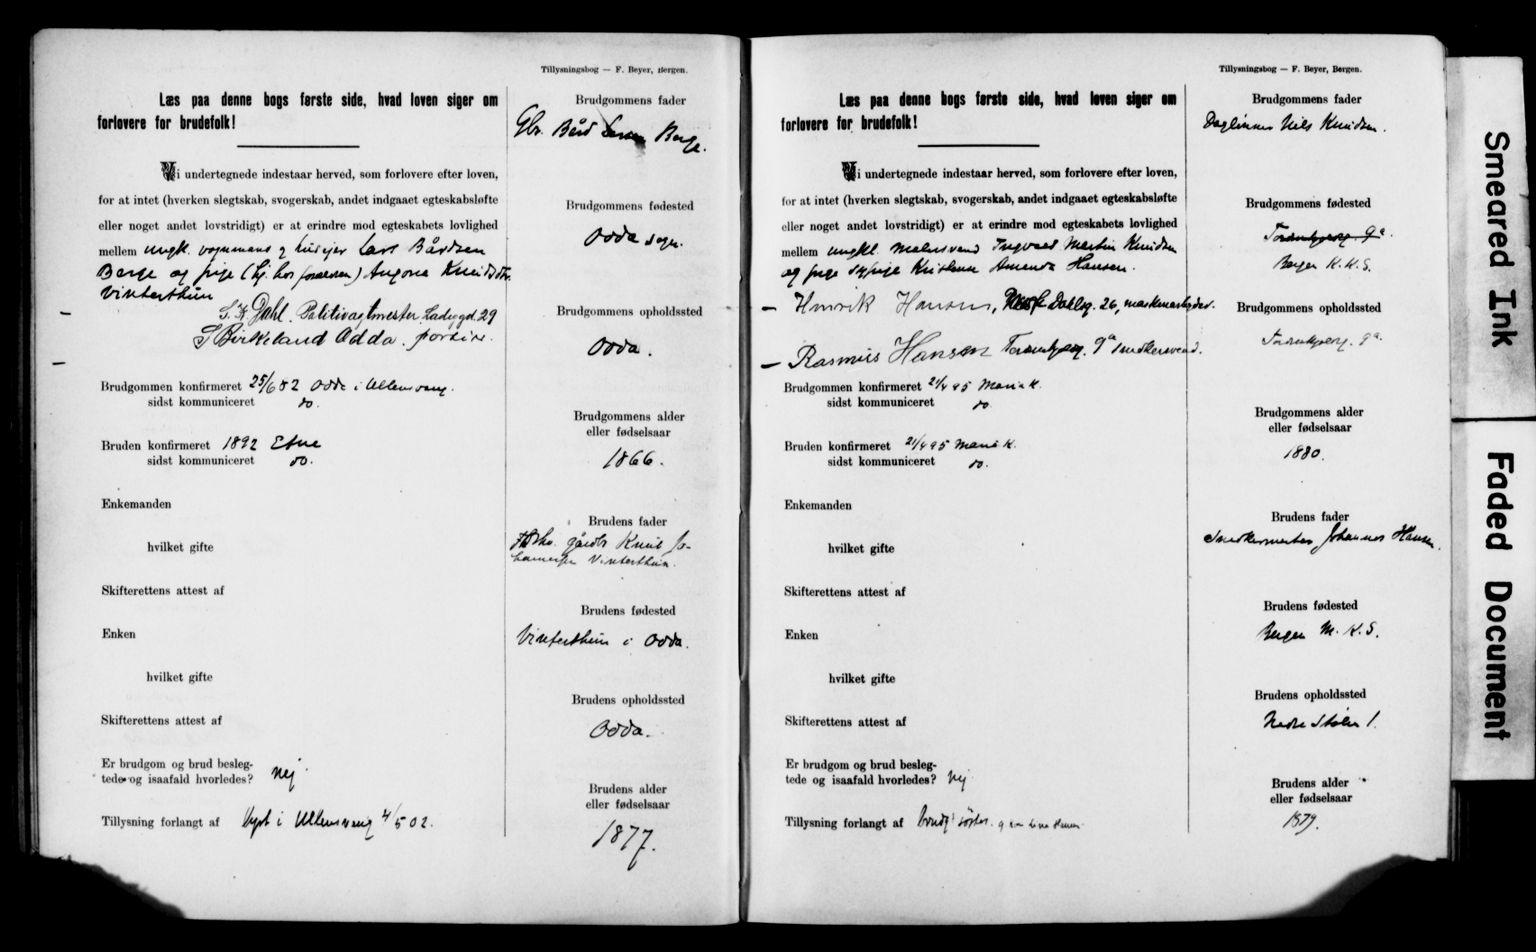 Tillysningsbog — F. Beyer, Bergen.
Læs paa denne bogs første side, hvad loven siger om
forlovere for brudefolk!
Vi undertegnede indestaar herved, som forlovere efter loven,
for at intet (hverken slegtskab, svogerskab, andet indgaaet egteskabsløfte
eller noget andet lovstridigt) er at erindre mod egteskabets lovlighed
mellem ungk. vognmand husejer Lars Bårdsen
Berge og pige Knudsdtr.
Vinterthun
Dahl. Politivagtmester Ladegd. 29
S Birkeland Odda. portier.
Brudgommen konfirmeret 25/6 82 Odda i Ullensvang.
sidst kommuniceret do.
Bruden konfirmeret 1892 Etne
sidst kommuniceret do.
Enkemanden
hvilket gifte
Skifterettens attest af
Enken
hvilket gifte
Skifterettens attest af
Er brudgom og brud besleg-
tede og isaafald hvorledes? nej
Tillysning forlangt af Lyst i Ullensvang 4/5 02.
Brudgommens fader
Gbr. Bård Berge.
Brudgommens fødested
Odda sogn.
Brudgommens opholdssted
Odda.
Brudgommens alder
eller fødselsaar
1866.
Brudens fader
gårdbr Knud Jo-
hannesen Vinterthun.
Brudens fødested
Vinterthun i Odda.
Brudens opholdssted
Odda.
Brudens alder
eller fødselsaar
1877.
Tillysningsbog — F. Beyer, Bergen.
Læs paa denne bogs første side, hvad loven siger om
forlovere for brudefolk!
Vi undertegnede indestaar herved, som forlovere efter loven,
for at intet (hverken slegtskab, svogerskab, andet indgaaet egteskabsløfte
eller noget andet lovstridigt) er at erindre mod egteskabets lovlighed
mellem ungkl. malersvend Ingvald Martin Knudsen
og pige sypige Kristense Amanda Hansen.
Henrik Hansen, 26, maskinarbeider.
Rasmus Hansen 9a snedkersvend.
Brudgommen konfirmeret 21/4 95 Maria K.
sidst kommuniceret do
Bruden konfirmeret 21/4 95 Maria K.
sidst kommuniceret do.
Enkemanden
hvilket gifte
Skifterettens attest af
Enken
hvilket gifte
Skifterettens attest af
Er brudgom og brud besleg-
tede og isaafald hvorledes? Nej
Tillysning forlangt af
Brudgommens fader
Daglønner Nils Knudsen.
Brudgommens fødested
9a
Bergen K.K.S.
Brudgommens opholdssted
9a.
Brudgommens alder
eller fødselsaar
1880.
Brudens fader
Snedkermester Johannes Hansen.
Brudens fødested
Bergen M.K.S.
Brudens opholdssted
Nedre Stølen 1.
Brudens alder
eller fødselsaar
1879.
Smeared Ink
Faded Document